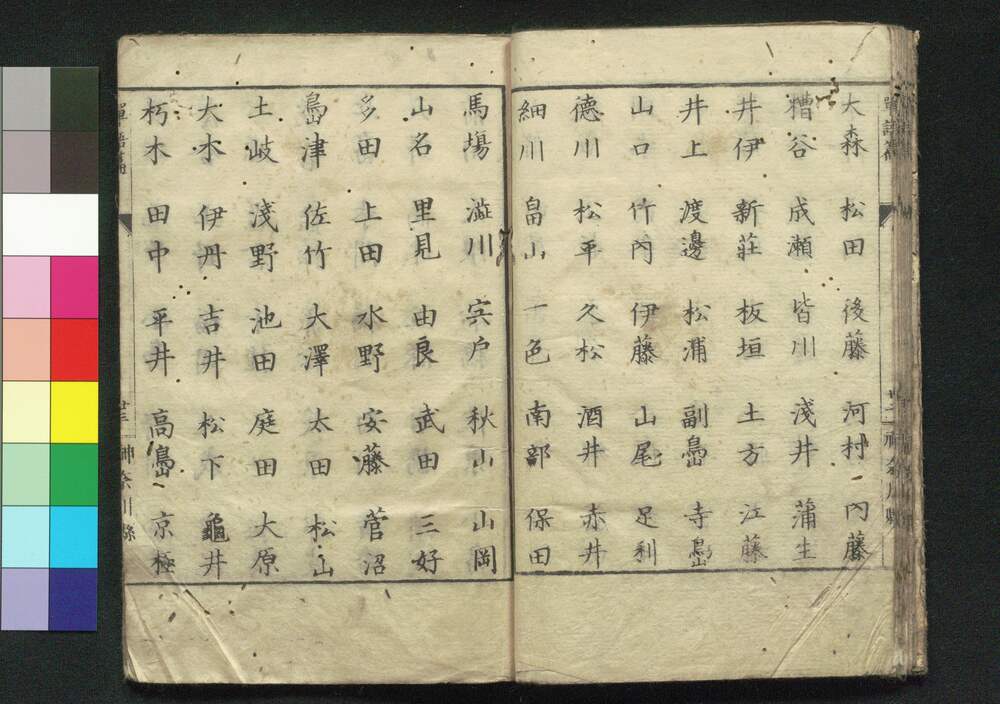 大森 松田 後藤 河村 內藤
糟谷 成瀬 皆川 淺井 蒲生
井伊 新莊 板垣 土方 江藤
井上 渡邊 松浦 副島 寺島
山口 竹內 伊藤 山尾 足利
德川 松平 久松 酒井 赤井
細川 畠山 一色 南部 保田
馬場 澁川 宍戶 秋山 山岡
山名 里見 由良 武田 三好
多田 上田 水野 安藤 菅沼
島津 佐竹 大澤 太田 松山
土岐 淺野 池田 庭田 大原
大木 伊丹 吉井 松下 龜井
朽木 田中 平井 高島 京極
單語篇 廿三 神奈川縣